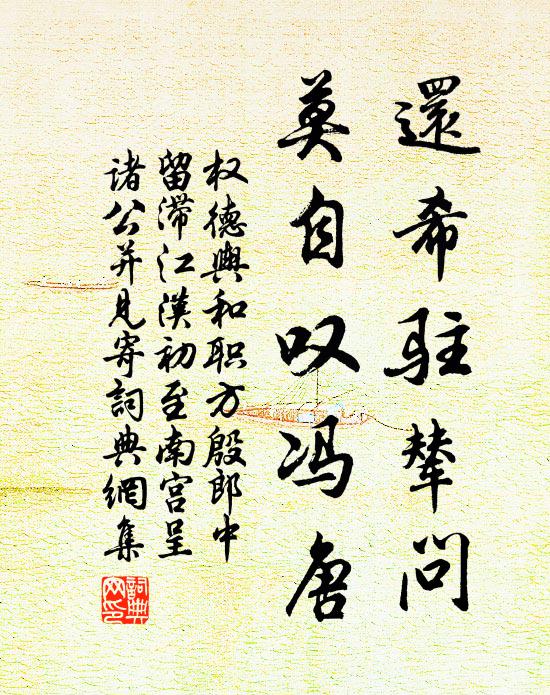 還希駐輦問
莫自叹冯唐
权德輿和职方殷郎中
留滞江漢初至南宫呈
诸公并见寄詞典網集
詞典
网印